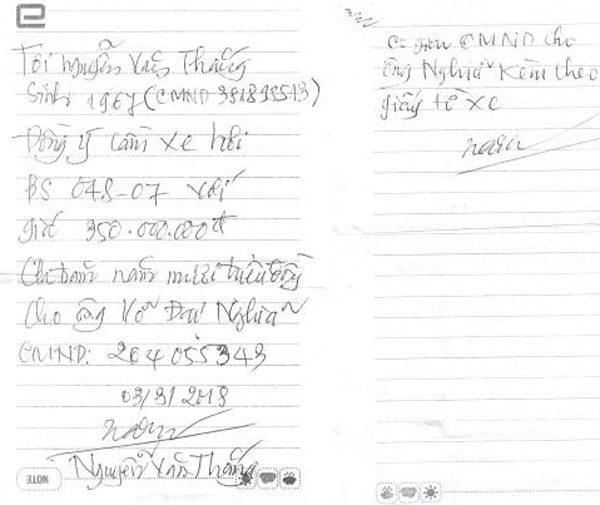 Tôi Nguyễn Văn Thắng
Sinh 1967 (CMND 381895543)
Đồng ý cầm xe hơi
BS 048-07 với
giá 350.000.000đ
Ba trăm năm mươi triệu đồng
Cho ông Võ Đại Nghĩa
CMND: 264055343
03/31/2018
Nguyễn Văn Thắng
NOTE
CMND cho
ông Nghĩa kèm theo
giấy tờ xe